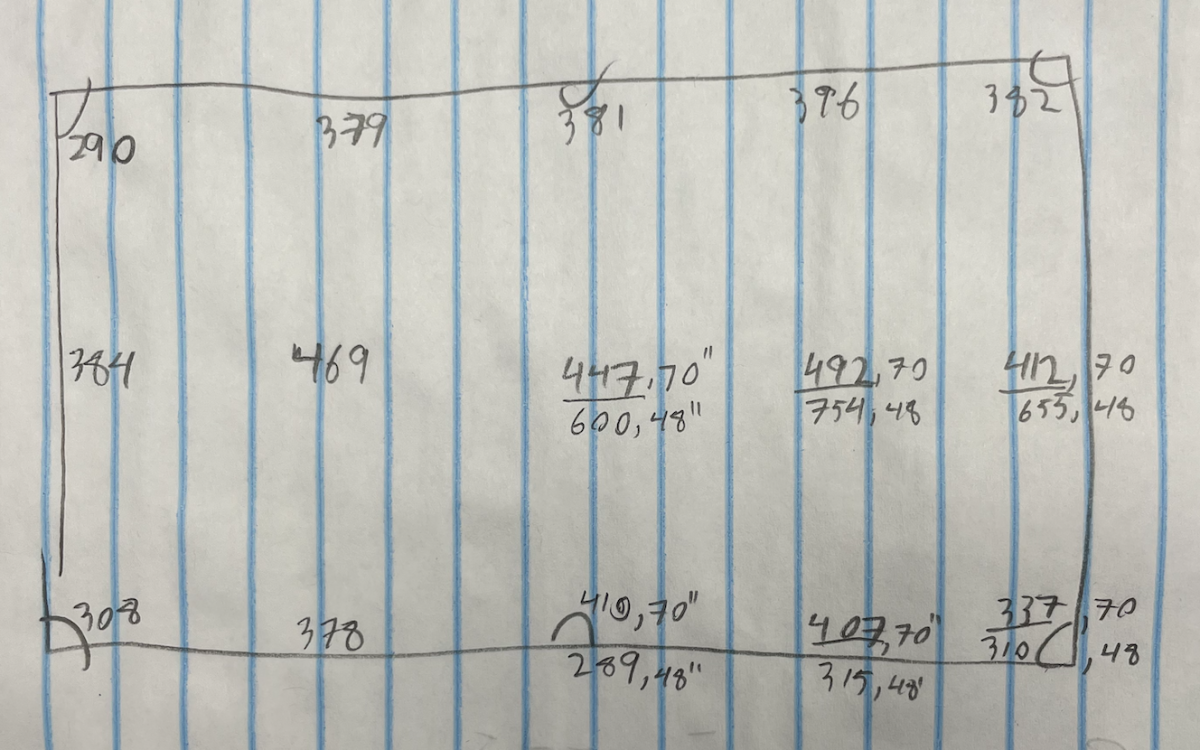 290 379 381 396 382
384 469 447,70" 492,70 412,70
600,48" 754,48 655,48
308 378 410,70" 407,70" 337,70
289,48" 315,48' 310,48